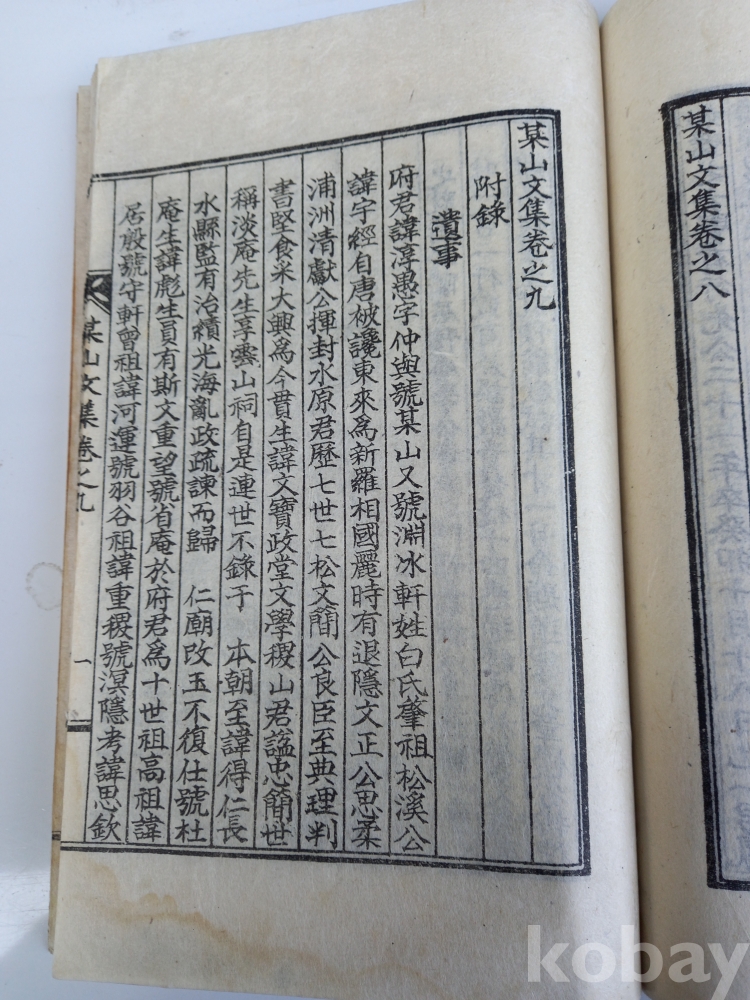 某山文集卷之八
某山文集卷之九
附錄
遺事
府君諱淳愚字仲與號某山又號淵冰軒姓白氏肇祖松溪公
諱宇經自唐被讒東來爲新羅相國麗時有退隱文正公思柔
浦洲清獻公揮封水原君歷七世七松文簡公良臣至典理判
書堅食采大興爲今貫生諱文寶政堂文學稷山君謚忠簡世
稱淡庵先生享雲山祠自是連世不錄于 本朝至諱得仁長
水縣監有治績光海亂政疏諫而歸 仁廟改玉不復仕號杜
庵生諱彪生員有斯文重望號省庵於府君爲十世祖高祖諱
居殷號守軒曾祖諱河運號羽谷祖諱重稷號溟隱考諱思欽
某山文集卷之九 一
kobay